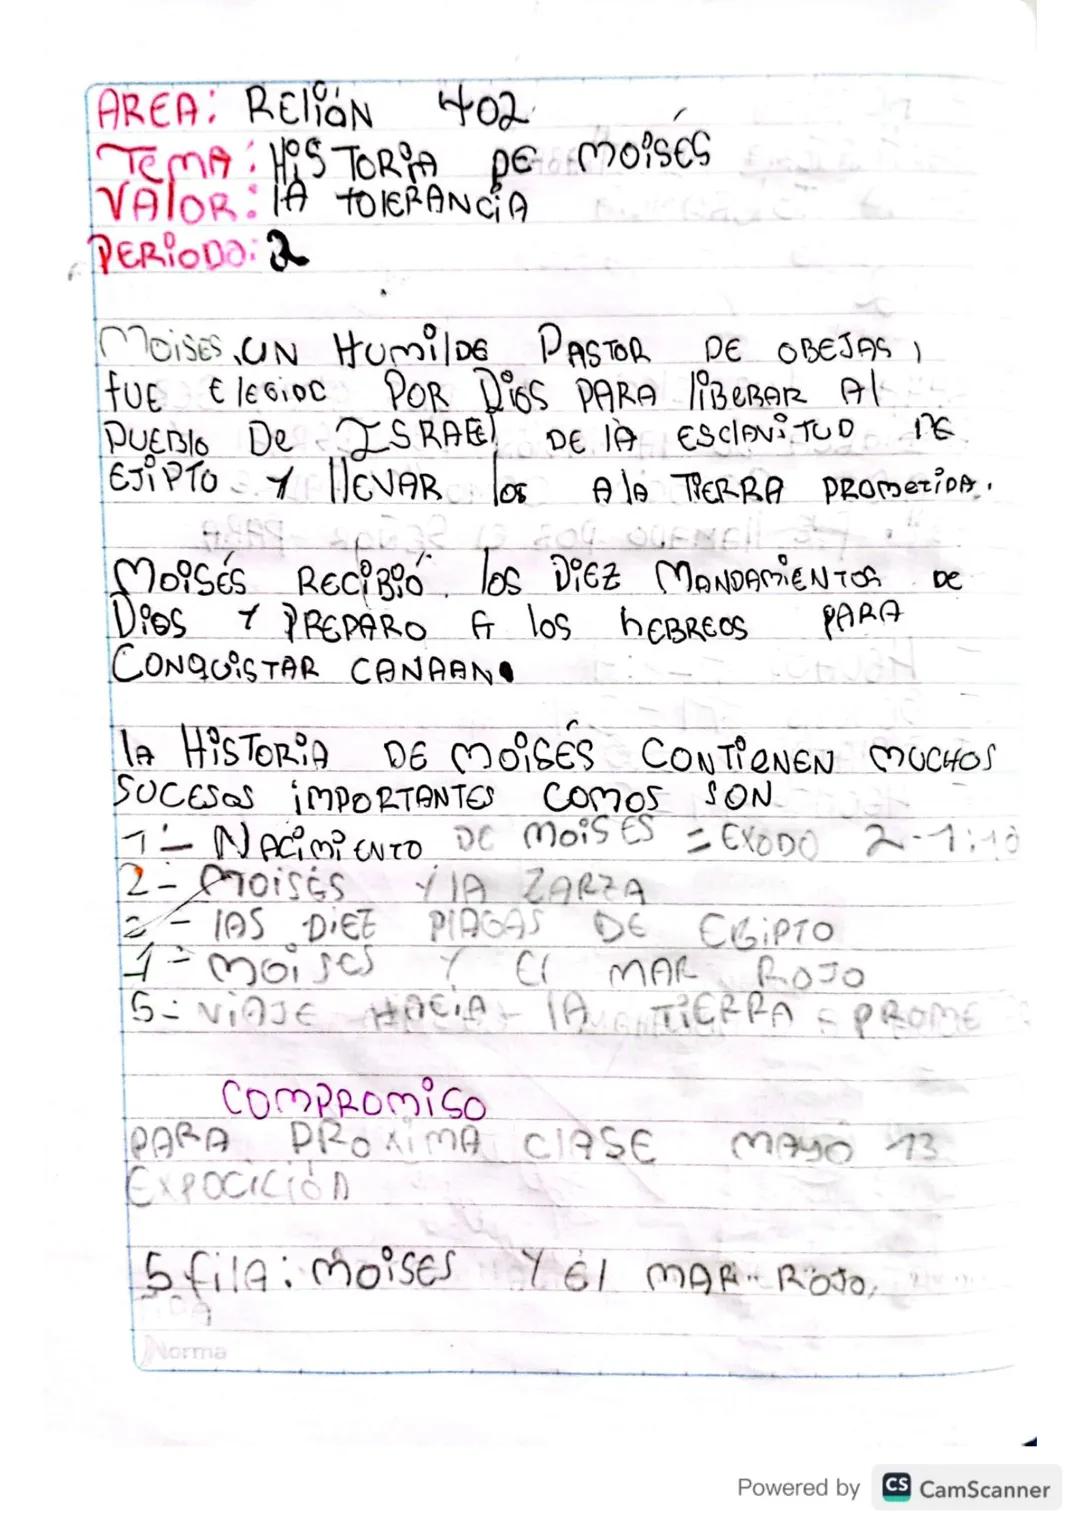 AREA: RElión 402
TEMA: HISTORiA DE MOiSÉS
VAlOR: lA tOlERANCiA
PERiODO: 2
MOiSES, UN HUMilDE PASTOR DE OBEJAS,
fUE ElEGiDO POR DiOS PARA liBERAR Al
PUEBlO De ISRAEl DE lA ESClAViTUD DE
EJiPTO Y llEVAR los A lA TiERRA PROMETiDA.
MOiSÉS RECiBiÓ los DiEZ MANDAMiENTOS DE
DiOS Y PREPARO A los hEBREOS PARA
CONQUiSTAR CANAAN.
lA HiSTORiA DE MOiSÉS CONTiENEN MUCHOS
SUCESOS iMPORTANTES COMOS SON
1- NACiMiENTO DE MOiSES = EXODO 2-1:10
2- MOiSÉS Y lA ZARZA
3- lAS DiEZ PlAGAS DE EGiPTO
4- MOiSES Y El MAR ROJO
5- ViAJE HACiA lA TiERRA PROME
COMPROMiSO
PARA PROXiMA ClASE MAYO 13
EXPOCiCiÓN
5 filA: MOiSES Y Él MAR ROJO,
Norma
Powered by CS CamScanner